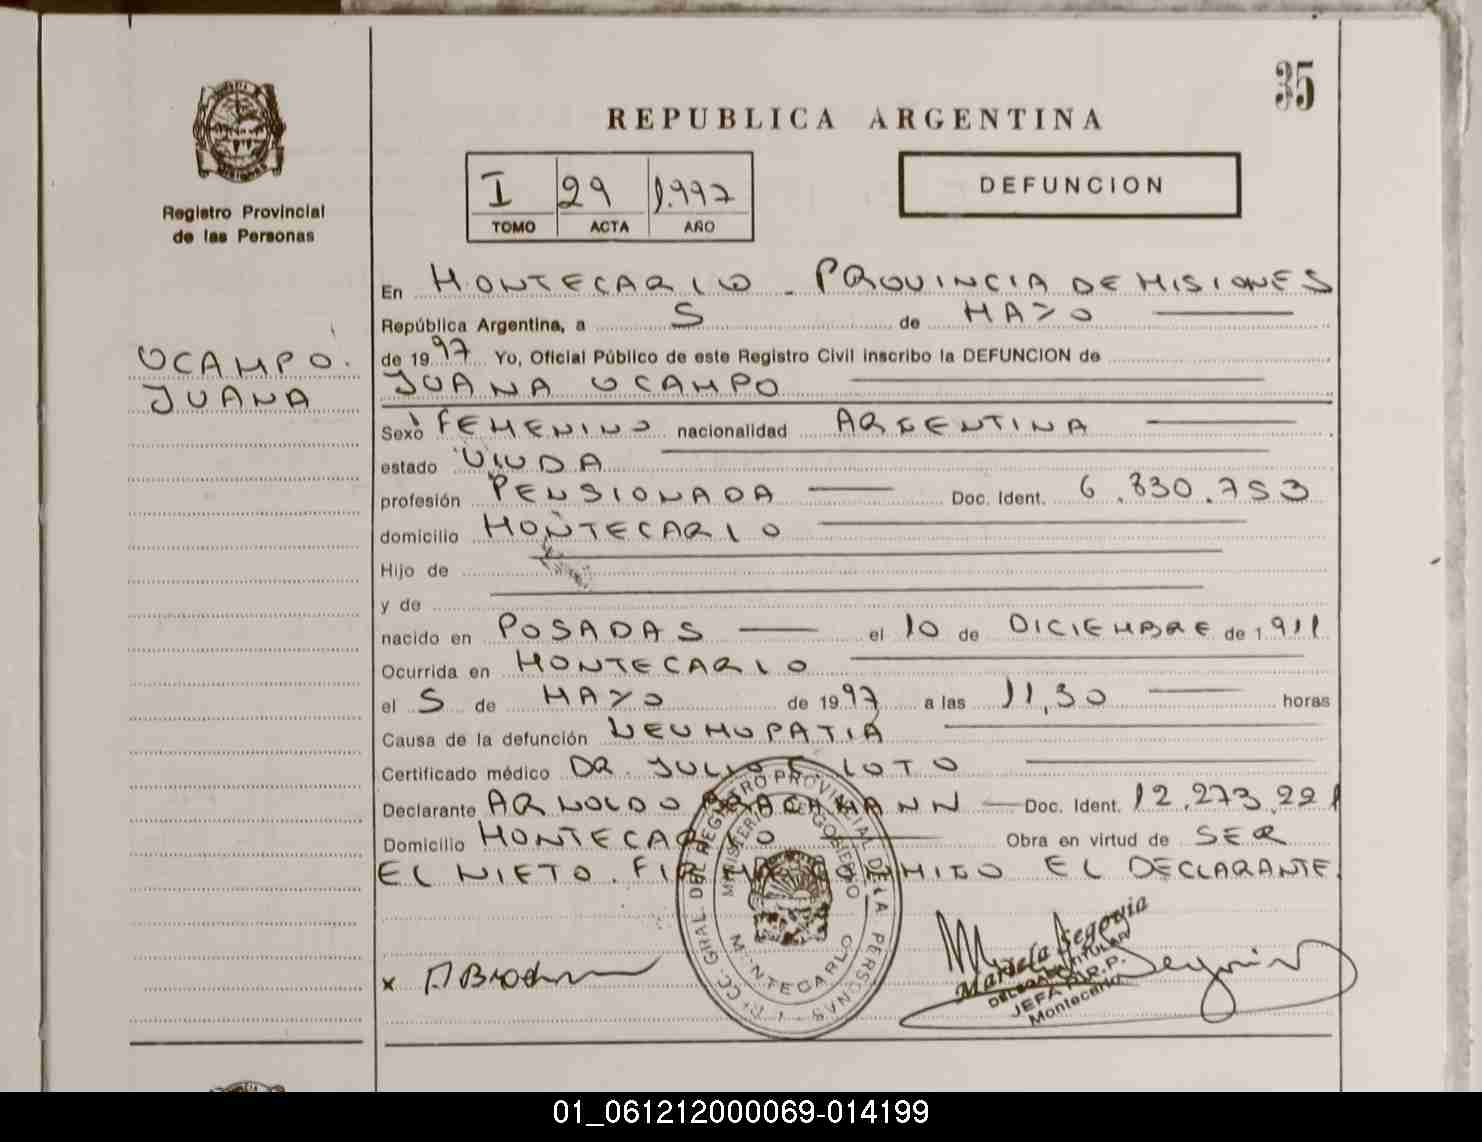 35
REPUBLICA ARGENTINA
I 29 1.997
TOMO ACTA AÑO
DEFUNCION
Registro Provincial
de las Personas
OCAMPO.
JUANA
En MONTECARLO - PROVINCIA DE MISIONES
República Argentina, a 5 de MAYO
de 1997 Yo, Oficial Público de este Registro Civil inscribo la DEFUNCION de
JUANA OCAMPO
Sexo FEMENINO nacionalidad ARGENTINA
estado VIUDA
profesión PENSIONADA Doc. Ident. 6.830.753
domicilio MONTECARLO
Hijo de
y de
nacido en POSADAS el 10 de DICIEMBRE de 1.911
Ocurrida en MONTECARLO
el 5 de MAYO de 1997 a las 11,30 horas
Causa de la defunción NEUMOPATIA
Certificado médico DR. JULIO LOTO
Declarante ARNOLDO BRACKMANN Doc. Ident. 12.273.221
Domicilio MONTECARLO Obra en virtud de SER
EL NIETO. FIRMA CONMIGO EL DECLARANTE.
x A Brackmann
MINISTERIO DE GOBIERNO
MONTECARLO
Mariela Segovia
DELEGADA TITULAR
JEFA R.P.P.
Montecarlo
01_061212000069-014199